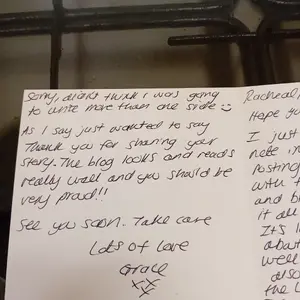 Sorry, didn't think I was going
to write more than one side
As I say just wanted to say
Thank you for sharing your
story. The blog looks and reads
really well and you should be
very proud!!
See you soon. Take care
Lots of love
Grace
xx
x
Racheal,
Hope yo
I just
note in
Posting
with t
and b
it all
Its l
abou
well
also
the l